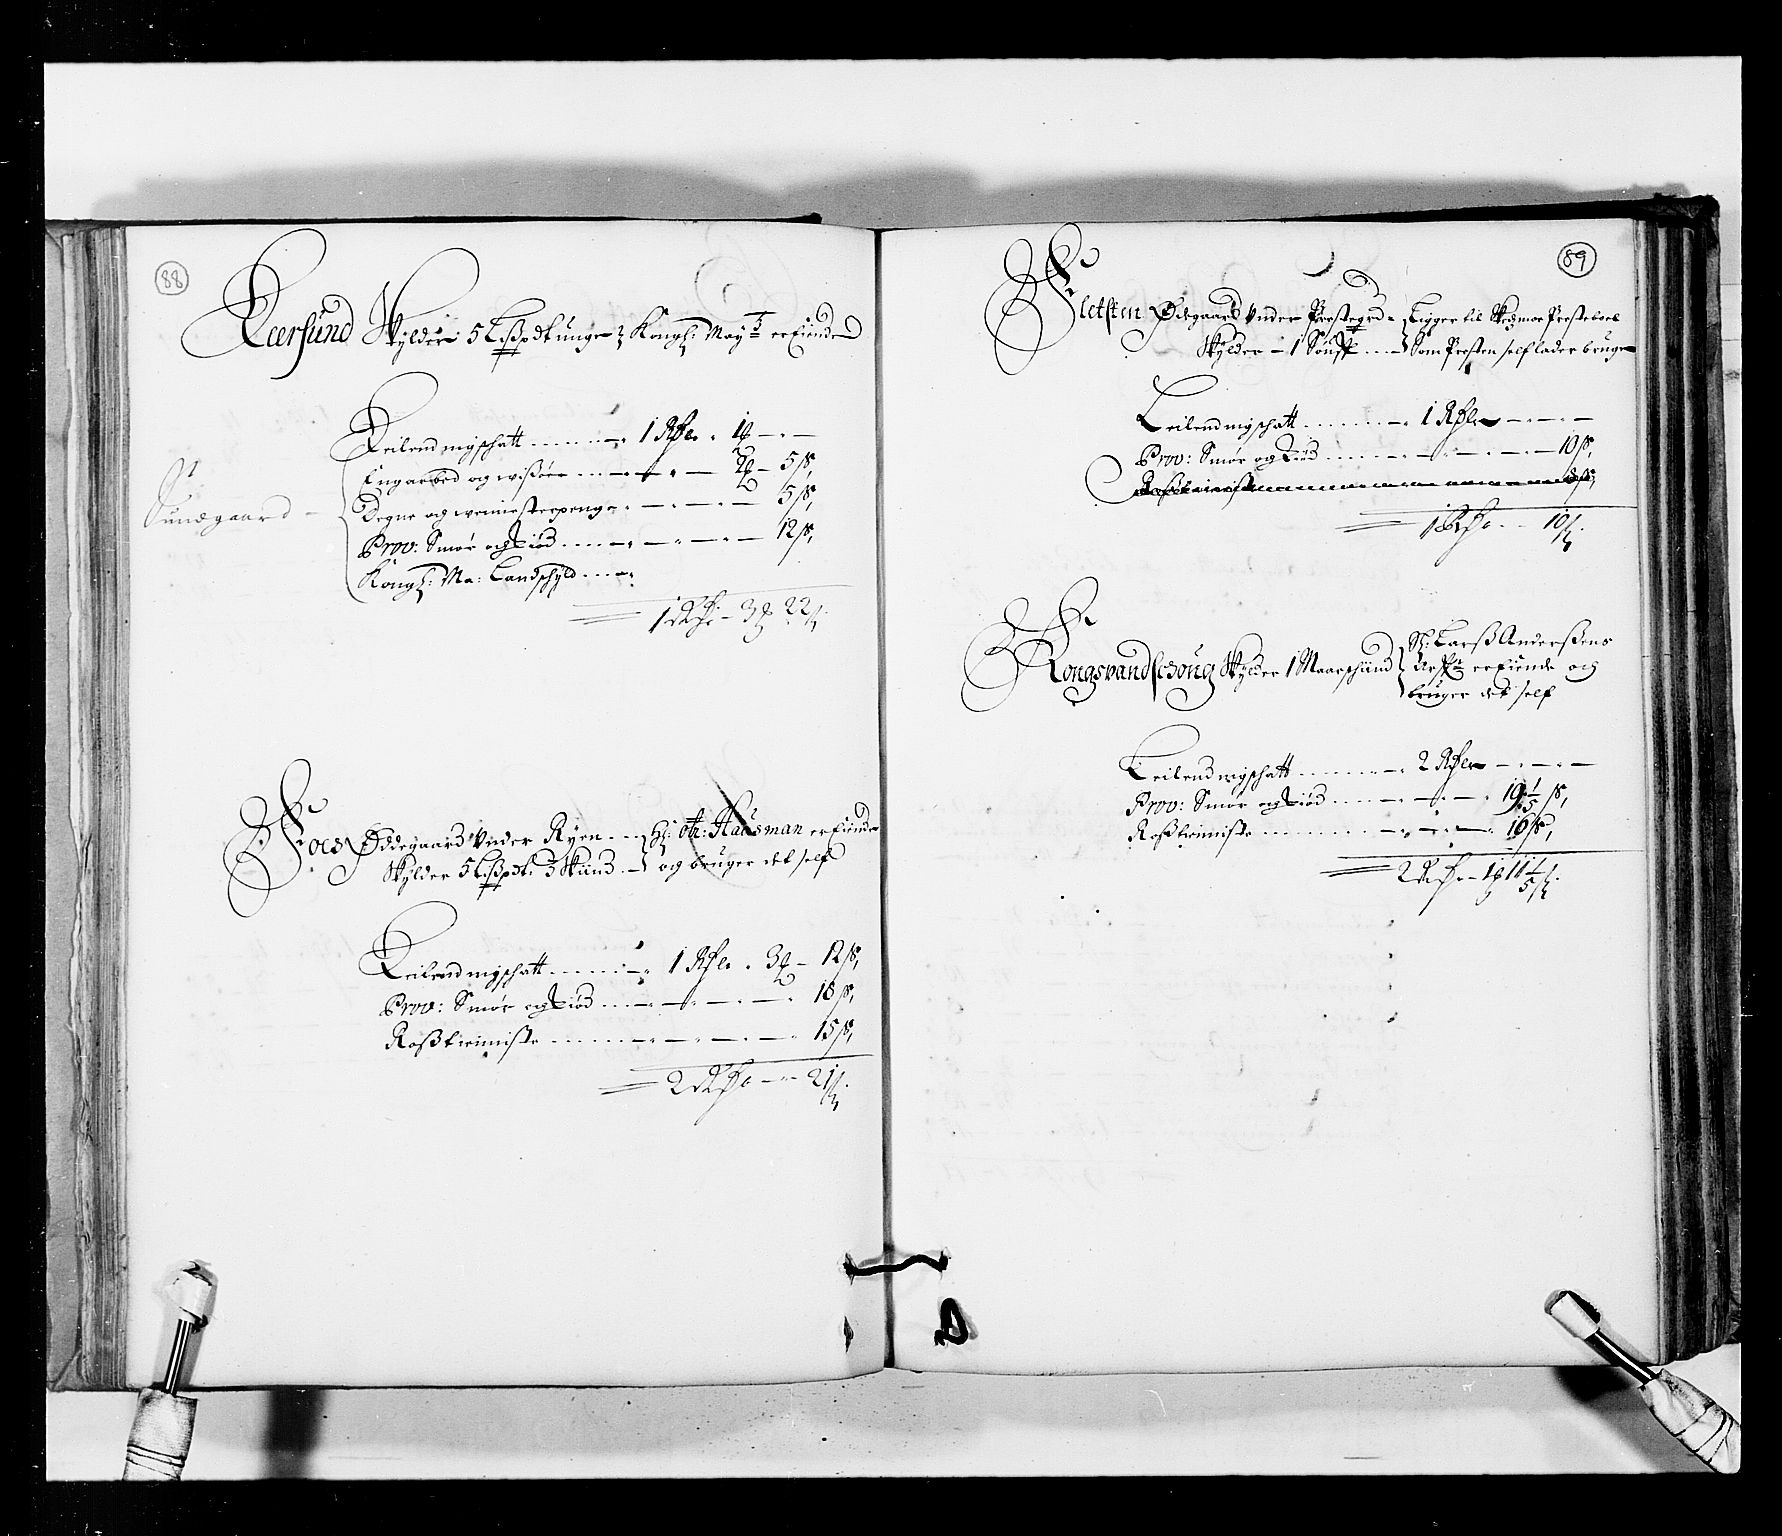 88
Kiersund Skylder 5 Lißpd tunge Kongl: May:tz er Eiende
Leilendingschatt 1 Rdr. 1
Engarbed og wißøre 2 5 ß,
Degne og weinesterpenge 5 ß,
Prov: Smør og Kiød 12 ß,
Kongl: Ma: Landschyld
Sunegaard
1 Rdr 3 22 ß
Foes Ødegaard under Ryen Hr: Ok: Hausman er Eiende
Skylder 5 Lißpd: 3 Skind og bruger det self
Leilendingschatt 1 Rdr. 3 12 ß,
Prov: Smør og Kiød 18 ß,
Roßtieniste 15 ß,
2 Rdr 21 ß
89
Fletsten Ødegaard under Prestegrd Ligger til Skedsmoe Presteboel
Skylder 1 Som Presten self lader bruge
Leilendingschatt 1 Rdr
Prov: Smør og Kiød 10 ß,
Roßtieniste
1 Rdr 10 ß
Kongsvandschoug Skylder 1 Maarschind Sl: Larß Anderßens
er Eiende og
bruger det self
Leilendingschatt 2 Rdr
Prov: Smør og Kiød 19 1/5 ß,
Roßtieniste 16 ß,
2 Rdr 1 11 1/5 ß